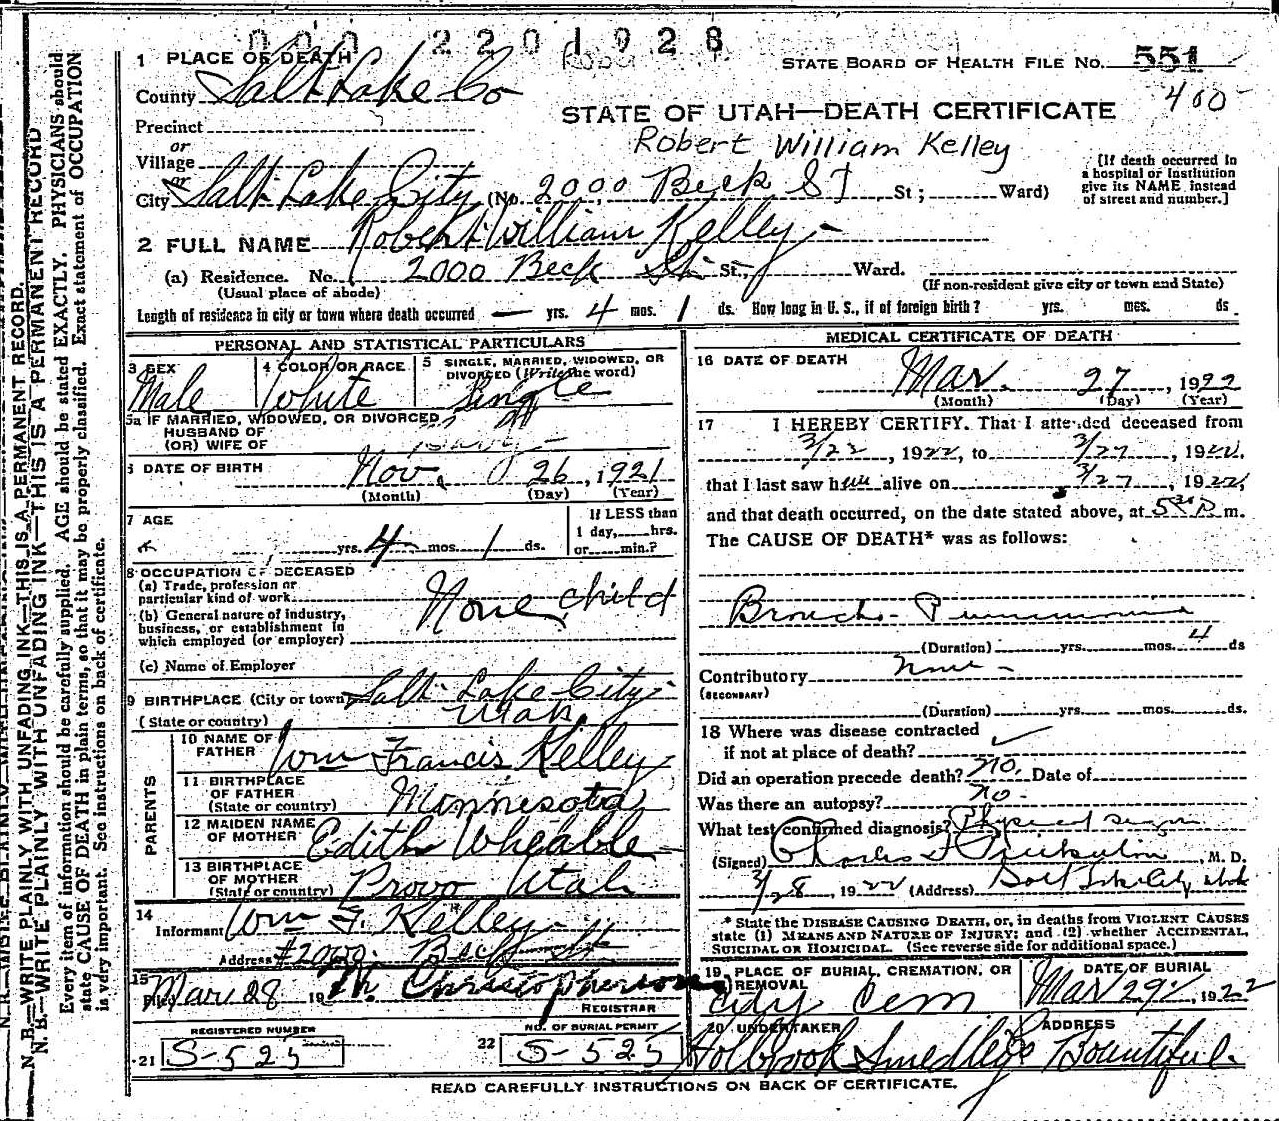 000 2201928
1 PLACE OF DEATH
STATE BOARD OF HEALTH FILE NO. 551
County Salt Lake Co
400
STATE OF UTAH—DEATH CERTIFICATE
Precinct
or
Robert William Kelley
Village
or
City Salt Lake City (No. 2000 Beck St St ; Ward)
[If death occurred in
a hospital or institution
give its NAME instead
of street and number.]
2 FULL NAME Robert William Kelley
(a) Residence. No. 2000 Beck St. St., Ward.
(Usual place of abode)
(If non-resident give city or town and State)
Length of residence in city or town where death occurred — yrs. 4 mos. 1 ds. How long in U. S., if of foreign birth? yrs. mos. ds
PERSONAL AND STATISTICAL PARTICULARS
3 SEX
Male
4 COLOR OR RACE
White
5 SINGLE, MARRIED, WIDOWED, OR
DIVORCED (Write the word)
Single
5a IF MARRIED, WIDOWED, OR DIVORCED
HUSBAND OF
(OR) WIFE OF
6 DATE OF BIRTH Nov. 26, 1921
(Month) (Day) (Year)
7 AGE
yrs. 4 mos. 1 ds.
If LESS than
1 day, hrs.
or min.?
8 OCCUPATION OF DECEASED
(a) Trade, profession or
particular kind of work
None child
(b) General nature of industry,
business, or establishment in
which employed (or employer)
(c) Name of Employer
9 BIRTHPLACE (City or town) Salt Lake City
(State or country) Utah
PARENTS
10 NAME OF
FATHER Wm Francis Kelley
11 BIRTHPLACE
OF FATHER
(State or country) Minnesota
12 MAIDEN NAME
OF MOTHER Edith Wheable
13 BIRTHPLACE
OF MOTHER
(State or country) Provo Utah
14
Informant Wm F. Kelley
Address #2000 Beck St
15
Filed Mar 28 19 M. Christopherson
REGISTRAR
REGISTERED NUMBER
21 S-525
NO. OF BURIAL PERMIT
22 S-525
MEDICAL CERTIFICATE OF DEATH
16 DATE OF DEATH Mar. 27, 1922
(Month) (Day) (Year)
17 I HEREBY CERTIFY. That I attended deceased from
3/22, 1922, to 3/27, 1922,
that I last saw him alive on 3/27, 1922,
and that death occurred, on the date stated above, at 5 30 P m.
The CAUSE OF DEATH* was as follows:
Broncho-Pneumonia
(Duration) yrs. mos. 4 ds
Contributory None
(SECONDARY)
(Duration) yrs. mos. ds.
18 Where was disease contracted
if not at place of death?
Did an operation precede death? no. Date of
Was there an autopsy? no.
What test confirmed diagnosis? Physical signs
(Signed) Charles F M. D.
3/28, 1922 (Address) Salt Lake City Utah
* State the DISEASE CAUSING DEATH, or, in deaths from VIOLENT CAUSES
state (1) MEANS AND NATURE OF INJURY; and (2) whether ACCIDENTAL,
SUICIDAL OR HOMICIDAL. (See reverse side for additional space.)
19 PLACE OF BURIAL, CREMATION, OR
REMOVAL
City Cem
DATE OF BURIAL
Mar 29, 1922
20 UNDERTAKER
Holbrook Smedley
ADDRESS
Bountiful
READ CAREFULLY INSTRUCTIONS ON BACK OF CERTIFICATE.
N. B.—WRITE PLAINLY WITH UNFADING INK—THIS IS A PERMANENT RECORD.
N. B.—WRITE PLAINLY WITH UNFADING INK—THIS IS A PERMANENT RECORD
Every item of information should be carefully supplied. AGE should be stated EXACTLY. PHYSICIANS should
state CAUSE OF DEATH in plain terms, so that it may be properly classified. Exact statement of OCCUPATION
is very important. See instructions on back of certificate.